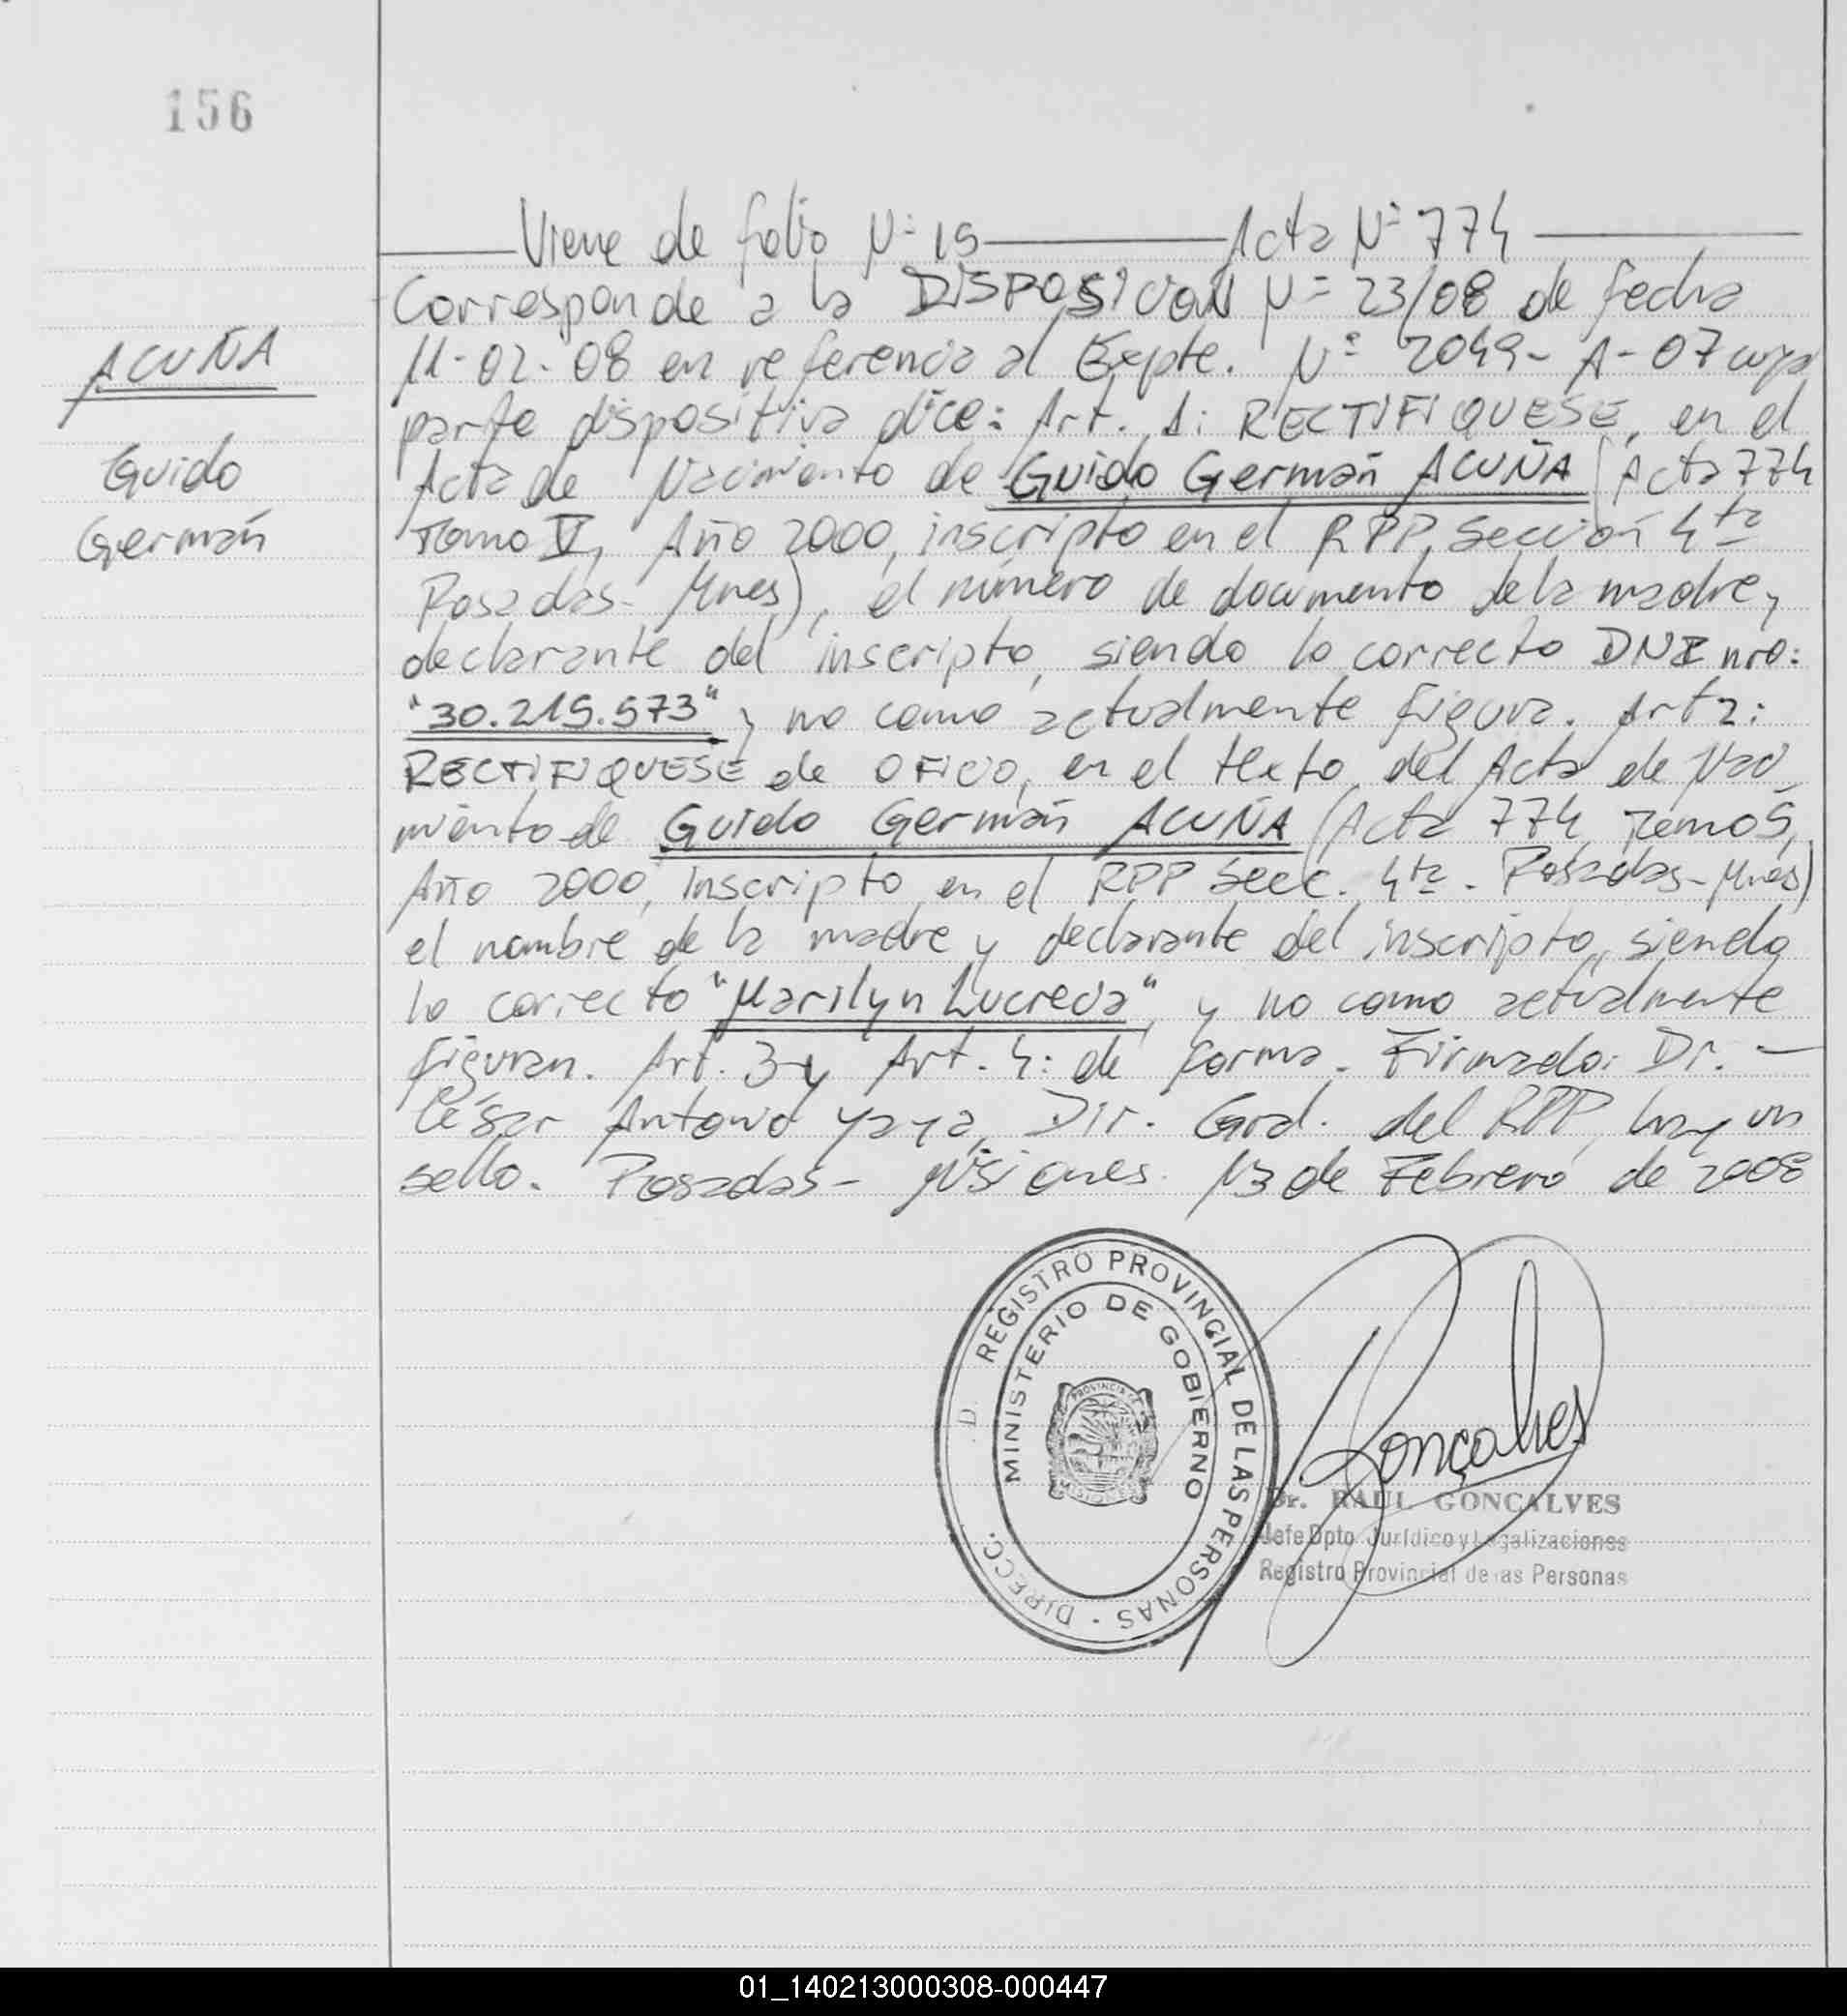 156
Viene de folio Nº 15 Acta Nº 774
Corresponde a la DISPOSICION Nº 23/08 de fecha
11-02-08 en referencia al Expte. Nº 2049-A-07 cuya
parte dispositiva dice: Art. 1: RECTIFIQUESE, en el
ACUÑA
Guido
Germán
Acta de Nacimiento de Guido Germán ACUÑA (Acta 774
Tomo V, Año 2000, inscripto en el RPP, Sección 4ta
Posadas- Mnes), el número de documento de la madre y
declarante del inscripto, siendo lo correcto DNI nro:
"30.215.573" y no como actualmente figura. Art 2:
RECTIFIQUESE de OFICIO, en el texto del Acta de Naci
miento de Guido Germán ACUÑA (Acta 774 Tomo 5,
Año 2000, inscripto en el RPP Secc. 4ta. Posadas-Mnes)
el nombre de la madre y declarante del inscripto, siendo
lo correcto "Marilyn Lucrecia", y no como actualmente
figuran. Art. 3 y Art. 4: de forma. Firmado: Dr. —
César Antonio Yaya, Dir. Gral. del RPP, hay un
sello. Posadas- Misiones. 13 de Febrero de 2008
DIRECC. REGISTRO PROVINCIAL DE LAS PERSONAS
MINISTERIO DE GOBIERNO
PROVINCIA DE
MISIONES
Gonçalves
Dr. RAUL GONÇALVES
Jefe Dpto Jurídico y Legalizaciones
Registro Provincial de las Personas
01_140213000308-000447